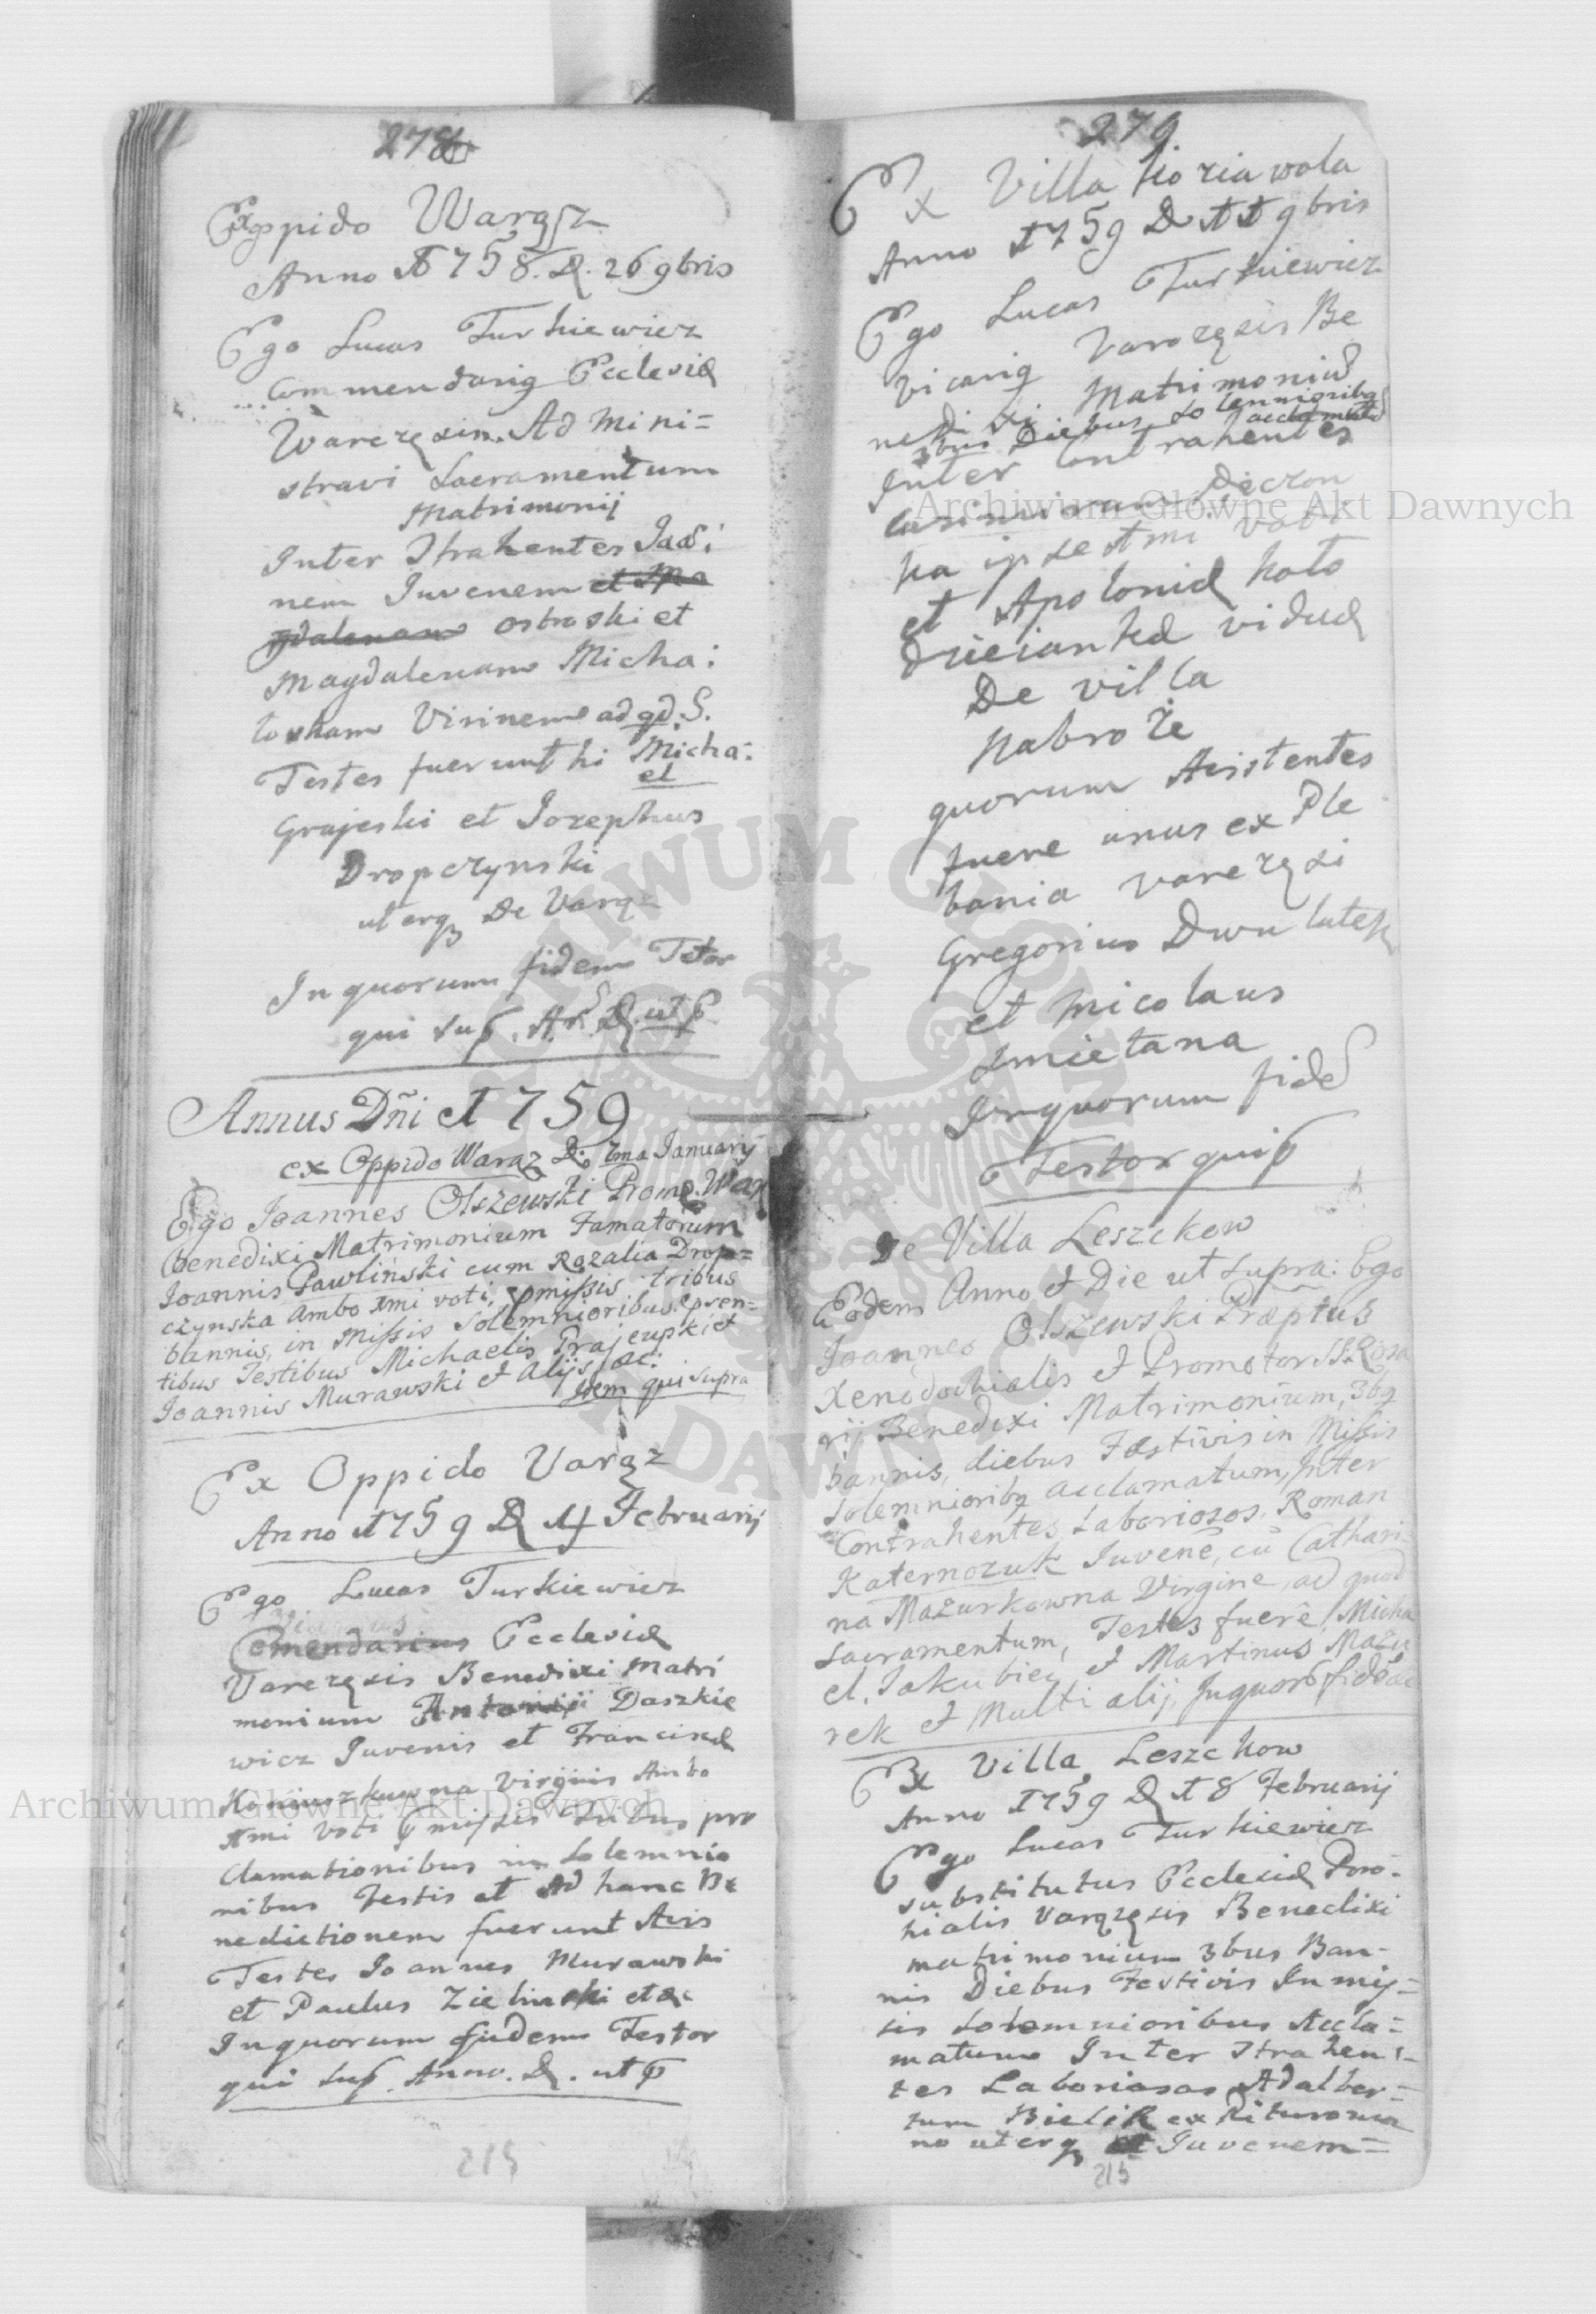 278
Ex Oppido Waręz
Anno 1758. D. 26 9bris
Ego Lucas Turkiewicz
Commendariq Ecclesiæ
Waręzęsis. Ad Mini=
stravi Sacramentum
Matrimonij
Inter Strahentes Jaśi
nem Juvenem et Ma
gdalenam ostroski et
Magdalenam Micha:
loskam Virinem ad qd. S.
Testes fuerunt hi Micha:
el
Grajeski et Jozephus
Dropczynski
uterq De Varęz
In quorum fidem Testor
qui sup. A. D. ut P
Annus Dñi 1759
ex Oppido Waręz D: 7ma Januarij
Ego Joannes Olszewski Promo. War
benedixi Matrimonium Famatorum
Joannis Pawliński cum Rozalia Drop=
czynska Ambo 1mi voti, pmissis tribus
bannis, in Missis Solemnioribus, pren=
tibus Testibus Michaelis Prajewski et
Joannis Murawski et Alijs, &c:
Idem qui supra
Ex Oppido Varęz
Anno 1759 D 14 Februarij
Ego Lucas Turkiewicz
Vicarius
Comendarius Ecclesiæ
Varezęsis Benedixi Matri
monium Antonij Daszkie
wicz Juvenis et Francisæ
Koniuszkuwna Virginis Ambo
1mi Voti pmissis Tribus pro
clamationibus in Solemnio
ribus Festis et Ad hanc Be
nedictionem fuerunt Assis
Testes Joannes Murawski
et Paulus Zielinski et &c
In quorum fidem Testor
qui sup. Anno. D. ut P
215
279
Ex Villa Horiawola
Anno 1759 D 11 9bris
Ego Lucas Turkiewicz
vicariq Varezęsis Be
nedixi Matrimoniũ
3bus Diebus solennioribq
acclamatũ
Inter Contrahentes
Casimirum Dieczon
ka ipse 1mi voti
et Apoloniæ Koło
dzieiankæ viduæ
De villa
Nabroże
quorum Assistentes
fuere unus ex Ple
bania Varezęsi
Gregorius Dwulatek
et Nicolaus
Smietana
In quorum fidẽ
Testor qui P
De Villa Leszczkow
Eodem Anno et Die ut supra: Ego
Joannes Olszewski Præptus
Xenodochialis et Promotor SS. Rosa
rij Benedixi Matrimonium, 3bq
bannis, diebus Festivis in Missis
Solemnioribq acclamatum, Inter
Contrahentes Laboriosos, Roman
Katernozuk Juvenẽ, cũ Cathari
na Mazurkowna Virgine, ad quod
Sacramentum, Testes fuerẽ, Micha
el, Jakubiec et Martinus Mazu
rek et Multi alij, In quorũ fidẽ &c
Ex Villa Leszckow
Anno 1759 D 18 Februarij
Ego Lucas Turkiewicz
substitutus Ecclesiæ Paro=
hialis Varęzęsis Benedixi
matrimonium 3bus Ban=
nis Diebus Festivis In mis=
sis solemnioribus Accla=
matum Inter Strahen=
tes Laboriosos Adalber=
tum Bielik ex Ritu roma
no uterq et Juvenem=
215
Archiwum Główne Akt Dawnych
Archiwum Główne Akt Dawnych
ARCHIWUM GŁÓWNE AKT DAWNYCH